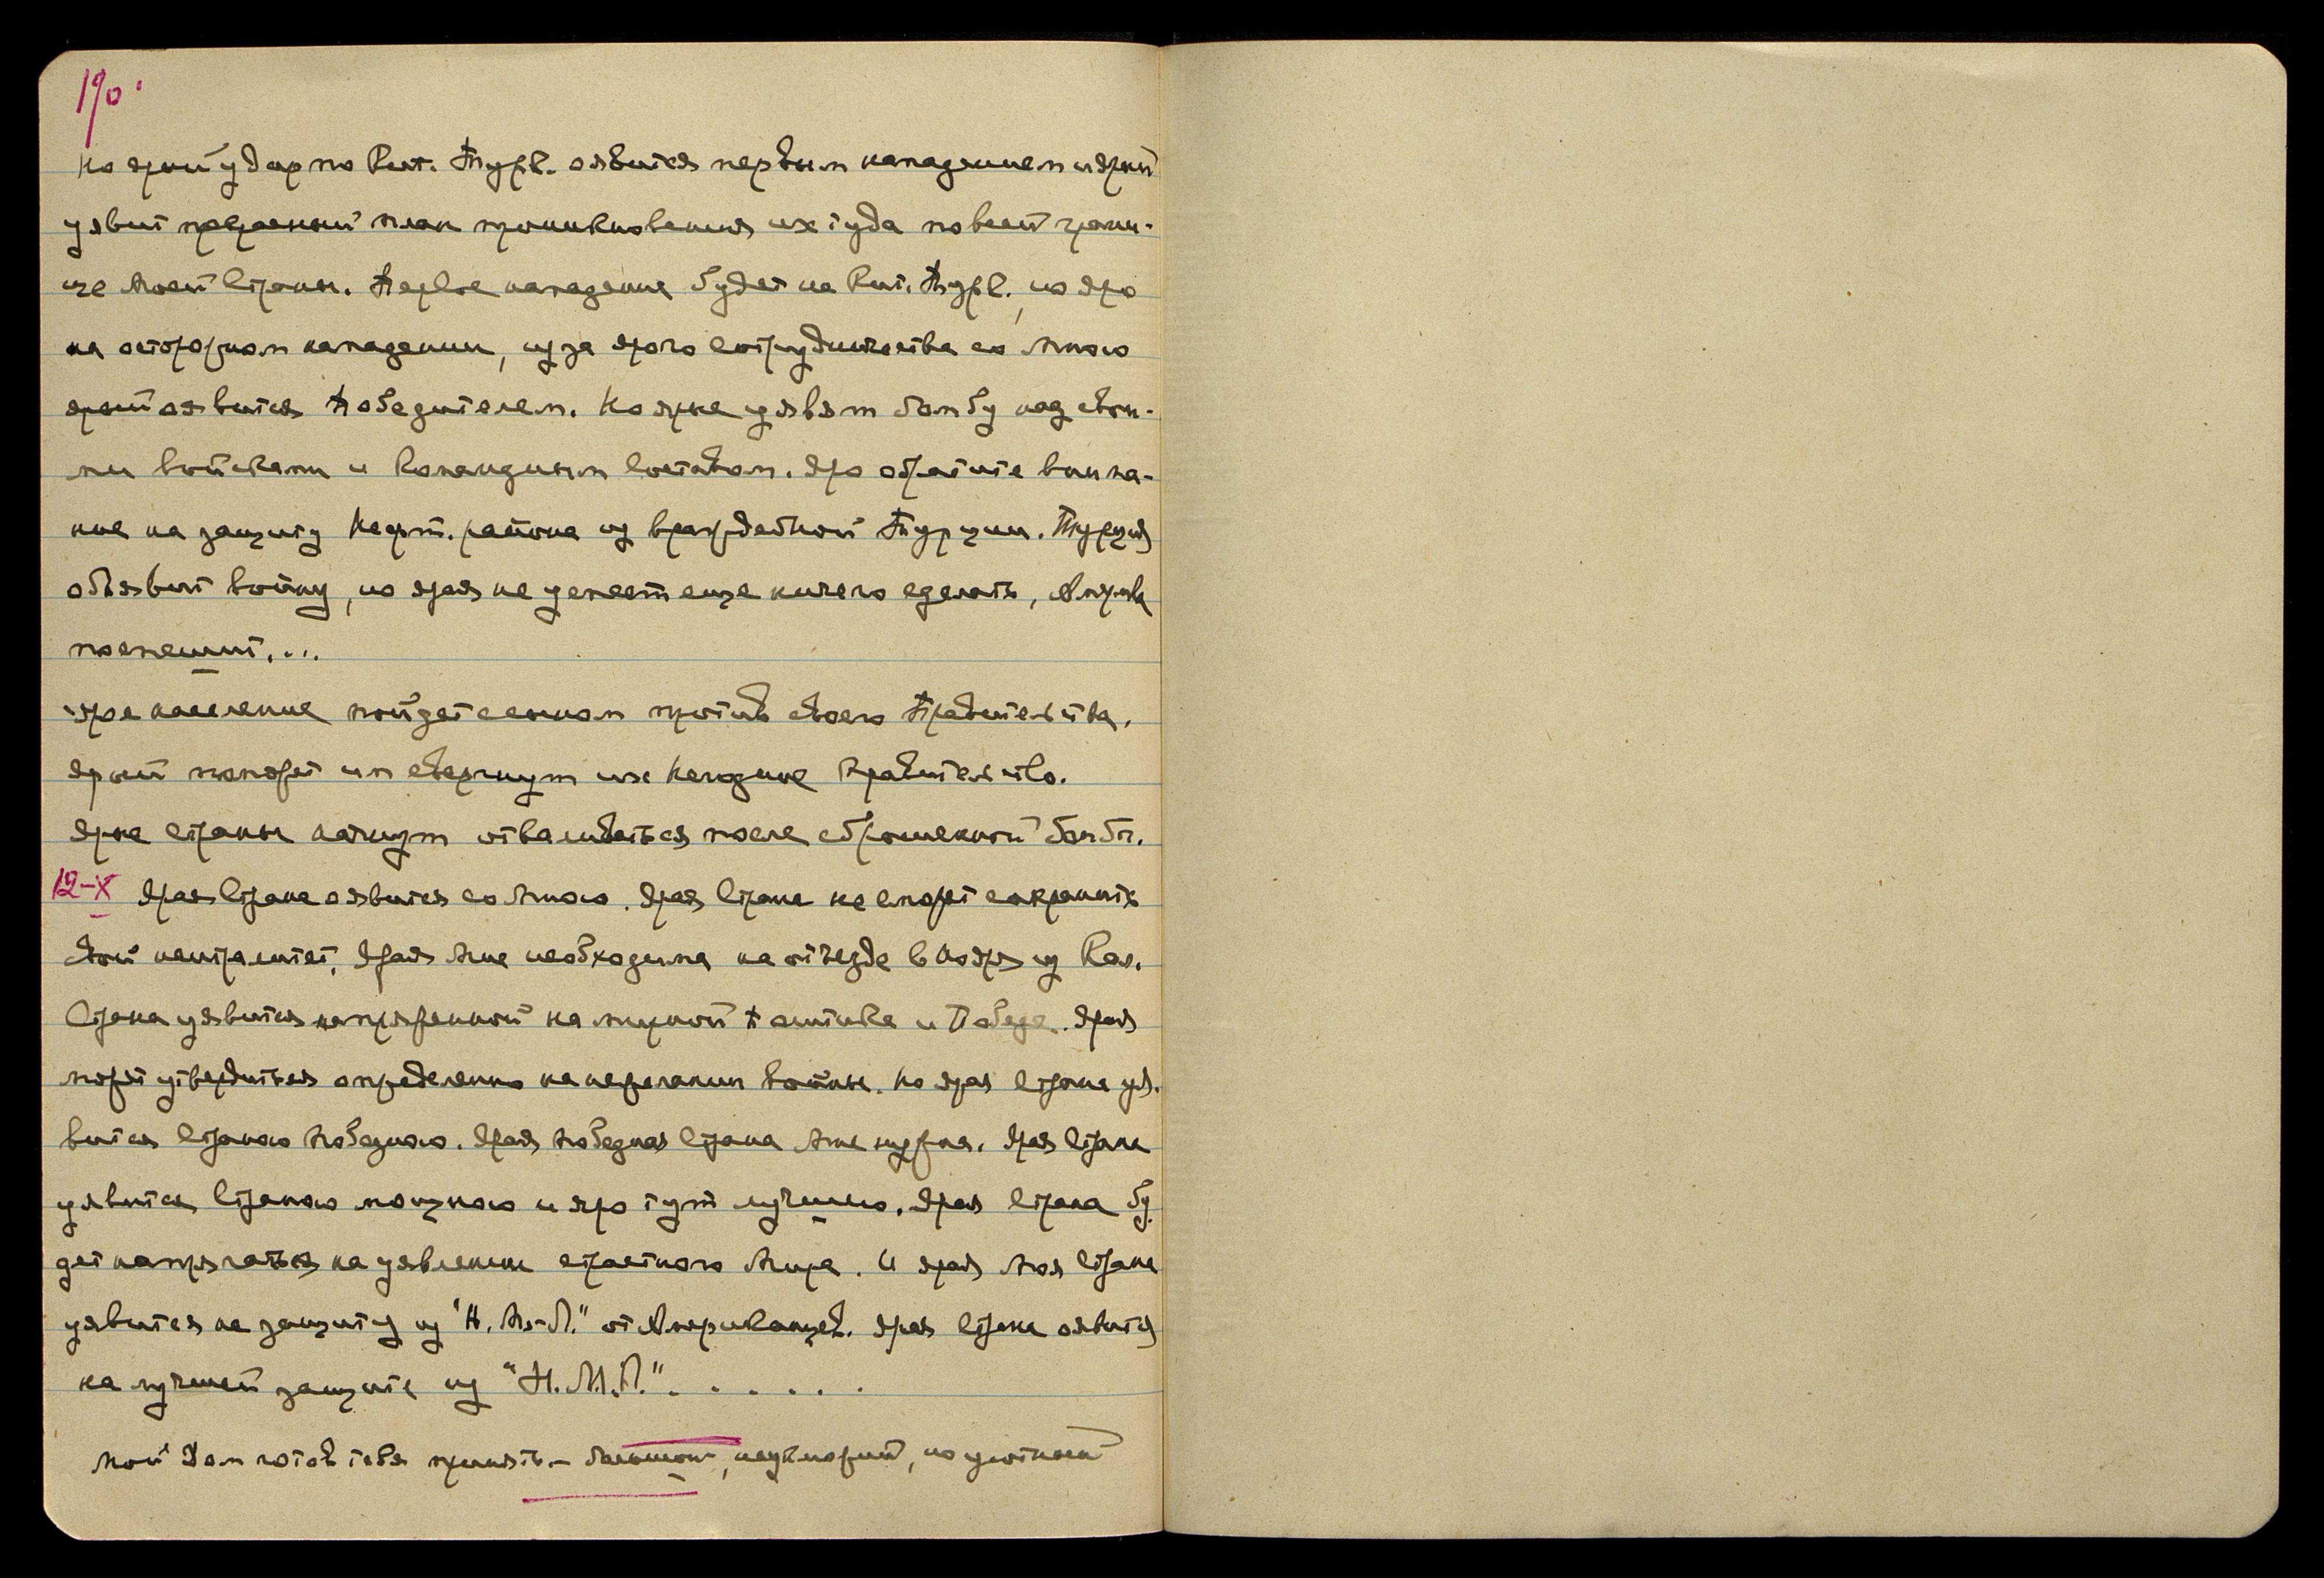 190.
Но ярый удар по Кит. Турк. оявится первым нападением и ярый
уявит прекрасный план проникновения их туда по всей грани-
це Моей Страны. Первое нападение будет на Кит. Турк., но яро
на осторожном нападении, из за ярого сотрудничества со Мною
ярый оявится Победителем. Но ярые уявят бомбу над свои-
ми войсками и командным составом. Яро обратите внима-
ние на защиту Нефт. района из враждебной Турции. Турция
объявит войну, но ярая не успеет еще ничего сделать, Америка
поспешит....
Ярое население пойдет сеыном против своего Правительства.
Ярый поможет им свергнут их негодное Правительство.
Ярые страны начнут отваливаться после сброшенной бомбы.
12-X Ярая Страна оявится со Мною. Ярая Страна не сможет сохранить
свой нейтралитет. Ярая Мне необходима на отъезде в Ноябре из Кал.
Страна уявится напряженной на мирной Политике и Победе. Ярая
может утвердиться определенно на нежелании войны. Но ярая Страна уя-
вится Страною Победною. Ярая победная Страна Мне нужна. Ярая Страна
уявится Страною мощною и яро тут лучшею. Ярая Страна бу-
дет напрягаться на уявлении страстного Мира. И ярая Моя Страна
уявится на защиту из "Н.М.Л." от Американцев. Ярая Страна оявится
на лучшей защите из "Н.М.Л.". . . . . . .
Мой Дом готов тебя принять – большой, неуклюжий, но уютный